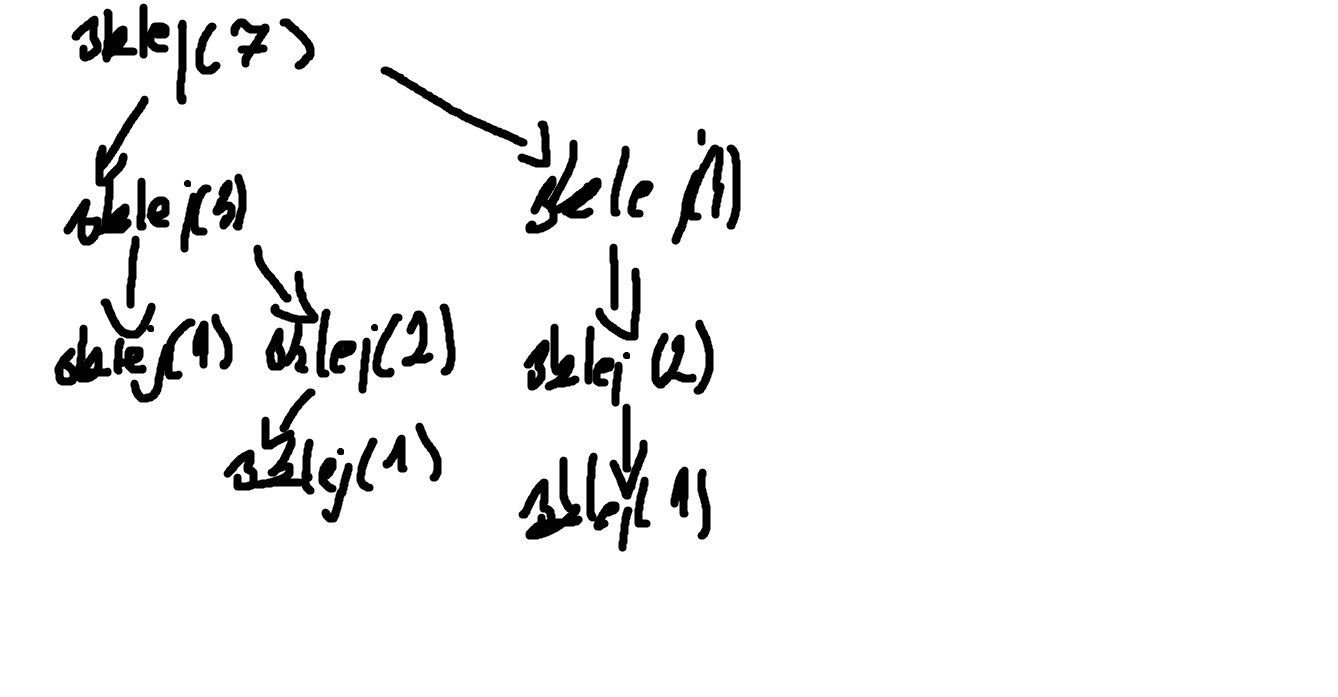 sklej(7)
sklej(3) sklej(1)
sklej(1) sklej(2) sklej(2)
sklej(1) sklej(1)